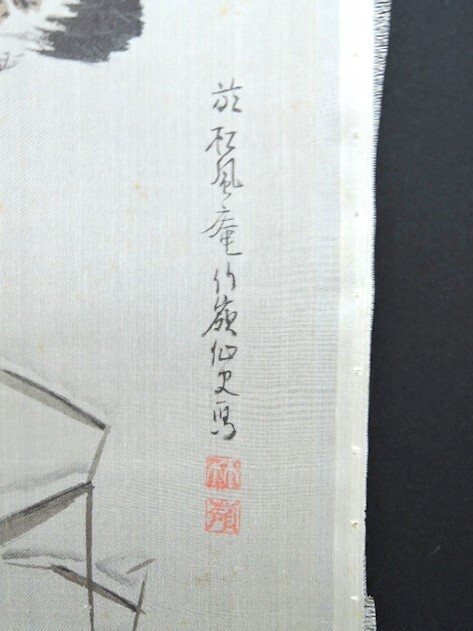 於松風庵竹嶺仙史写
竹
嶺